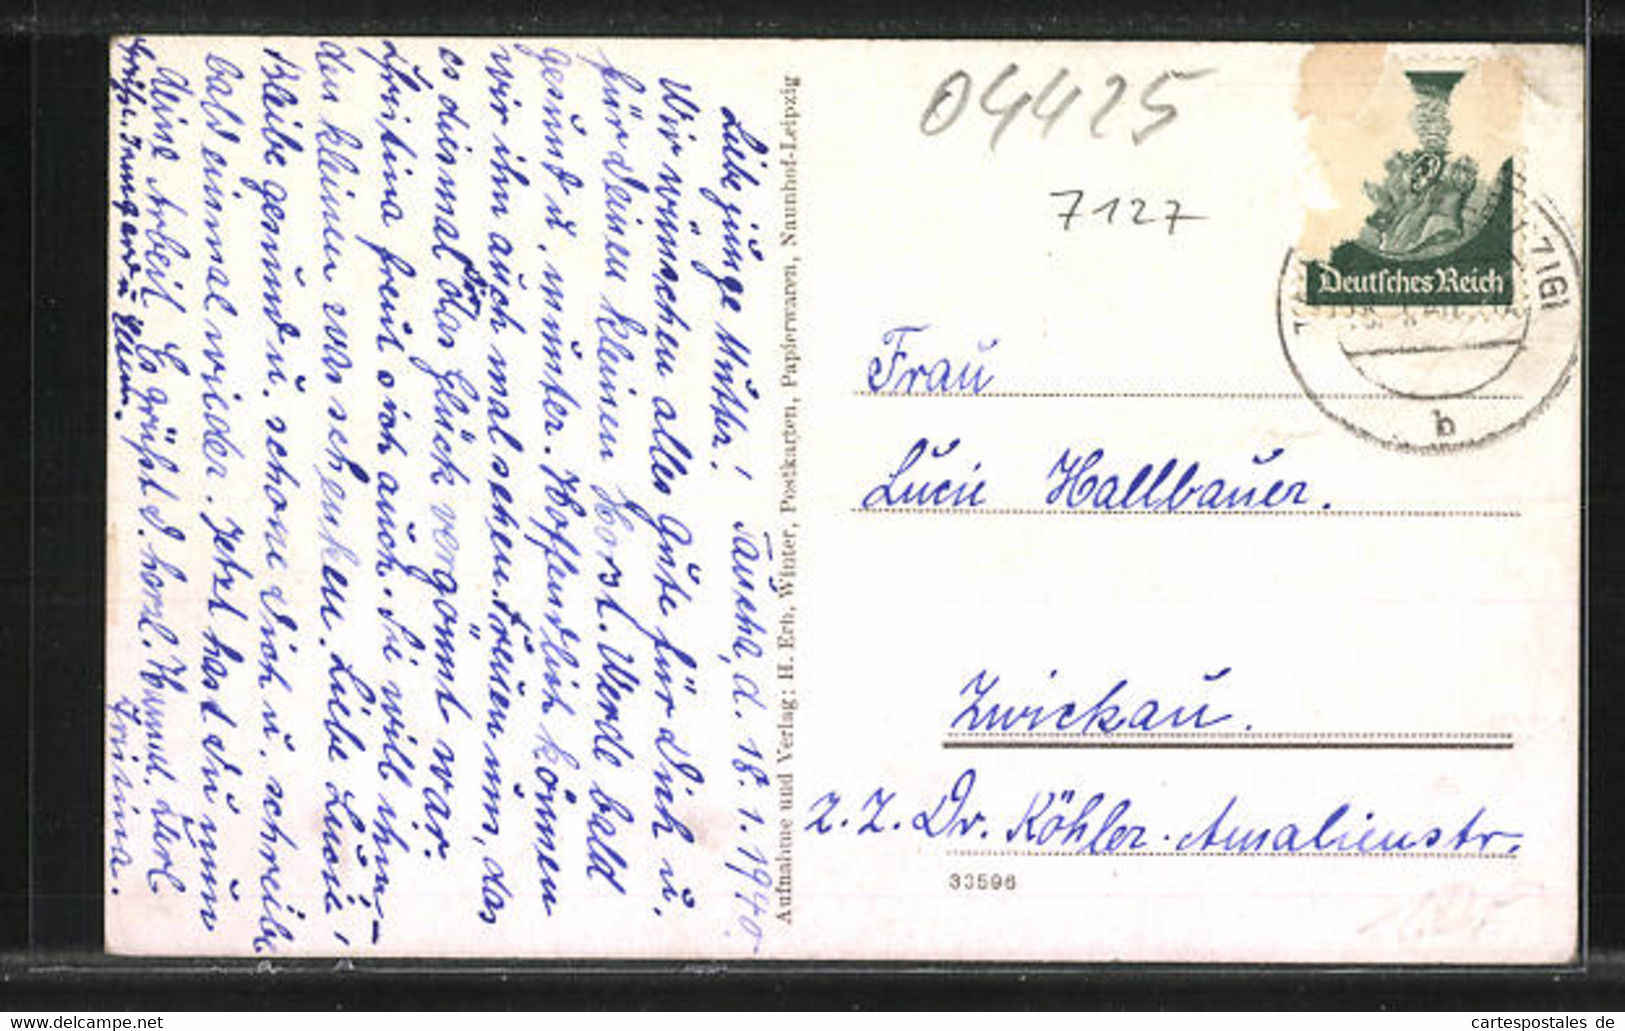 Taucha, d. 18.1.1940.
Liebe junge Mutter!
Wir wünschen alles Gute für Dich u.
für Deinen kleinen Horst. Werde bald
gesund u. munter. Hoffendlich können
wir ihn auch mal sehen. Freuen uns, das
es diesmal Dir das Glück vergönnt war.
Christina freut sich auch. Sie will ihm
den kleinen was schenken. Liebe Lucie!
Bleibe gesund u. schone Dich u. schreibe
bald einmal wieder. Jetzt hast Du nun
Deine Arbeit. Es grüßt d. herzl. Karl
Grüße. Irmgard u.
Aufnahme und Verlag: H. Erb, Winter, Postkarten, Papierwaren, Naunhof-Leipzig
04425
7127
Deutsches Reich
b
Frau
Lucie Hallbauer.
Zwickau.
z. Z. Dr. Köhler. Amalienstr.
33596
www.delcampe.net
cartespostales de